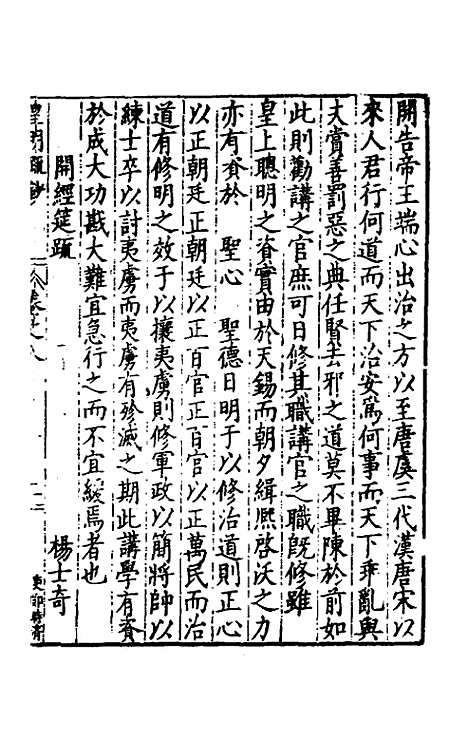 開告帝王端心出治之方以至唐虞三代漢唐宋以
來人君行何道而天下治安爲何事而天下乖亂與
夫賞善罰惡之典任賢去邪之道莫不畢陳於前如
此則勸講之官庶可日修其職講官之職既修雖
皇上聰明之資實由於天錫而朝夕緝熙啓沃之力
亦有資於　聖心　聖德日明于以修治道則正心
以正朝廷正朝廷以正百官正百官以正萬民而治
道有修明之效于以攘夷虜則修軍政以簡將帥以
練士卒以討夷虜而夷虜有殄滅之期此講學有資
於成大功戡大難宜急行之而不宜緩焉者也
開經筵疏　楊士奇
皇明疏鈔　卷之八